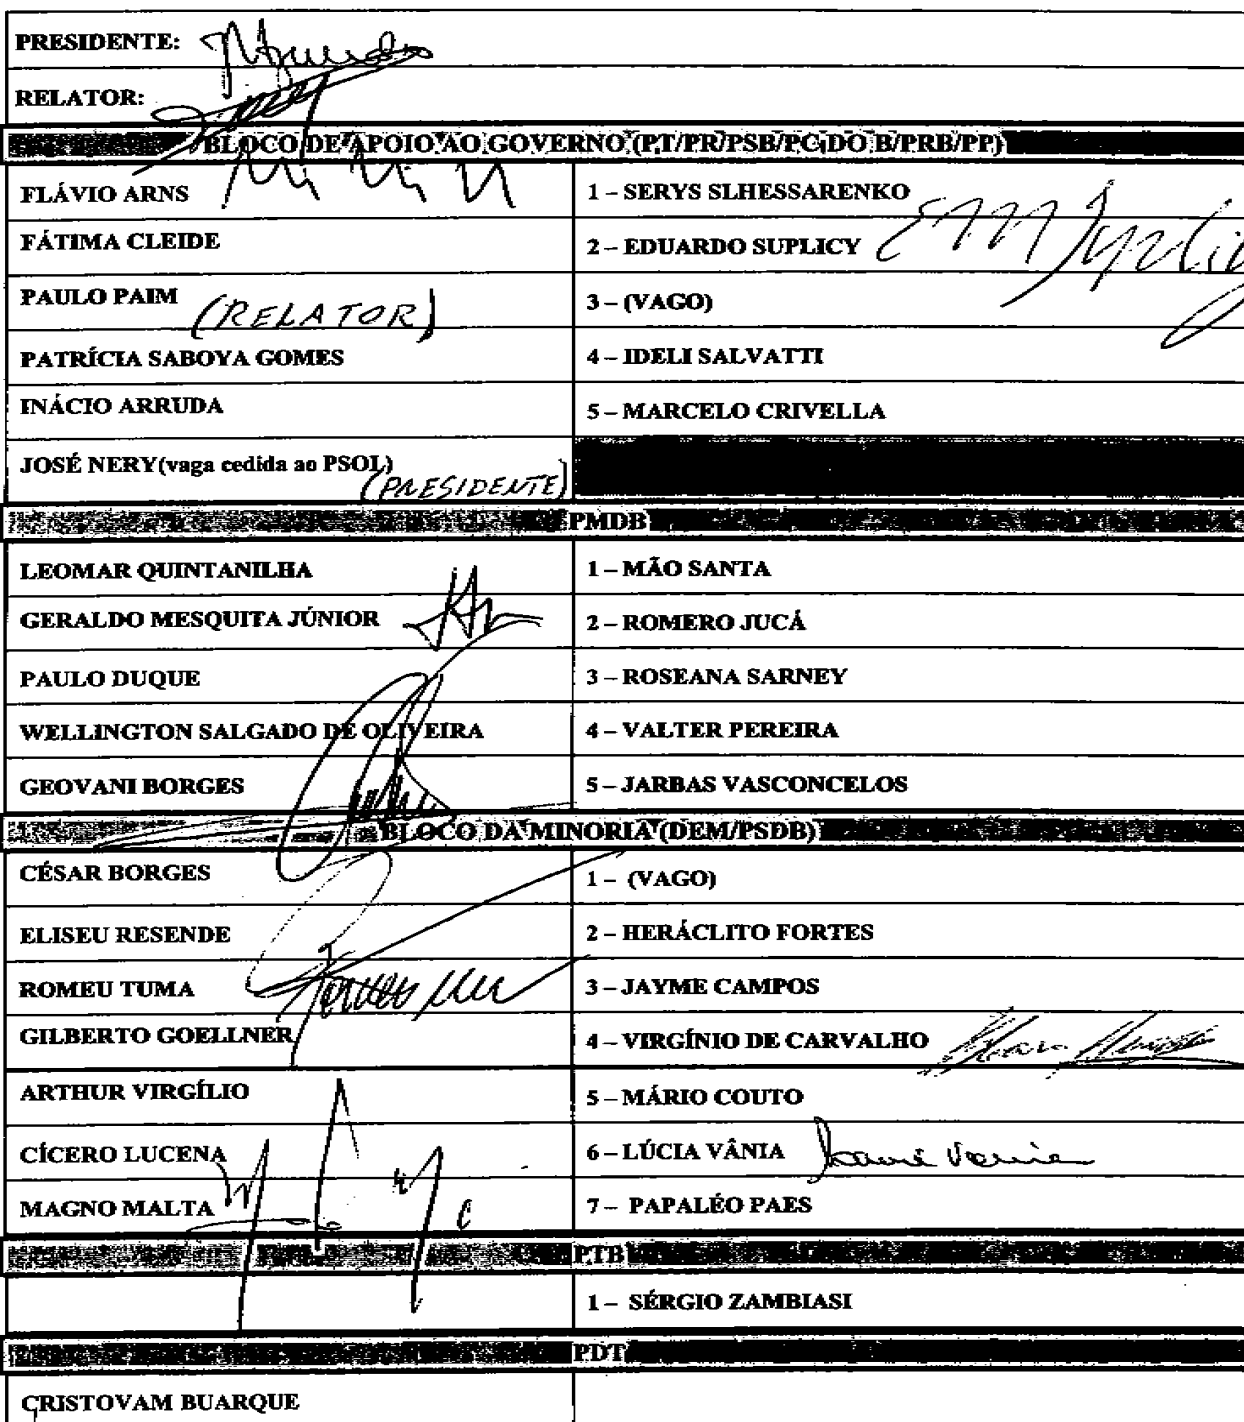 PRESIDENTE:
RELATOR:
BLOCO DE APOIO AO GOVERNO (PT/PR/PSB/PC DO B/PRB/PP)
FLÁVIO ARNS
1 – SERYS SLHESSARENKO
FÁTIMA CLEIDE
2 – EDUARDO SUPLICY
PAULO PAIM (RELATOR)
3 – (VAGO)
PATRÍCIA SABOYA GOMES
4 – IDELI SALVATTI
INÁCIO ARRUDA
5 – MARCELO CRIVELLA
JOSÉ NERY(vaga cedida ao PSOL)
(PRESIDENTE)
PMDB
LEOMAR QUINTANILHA
1 – MÃO SANTA
GERALDO MESQUITA JÚNIOR
2 – ROMERO JUCÁ
PAULO DUQUE
3 – ROSEANA SARNEY
WELLINGTON SALGADO DE OLIVEIRA
4 – VALTER PEREIRA
GEOVANI BORGES
5 – JARBAS VASCONCELOS
BLOCO DA MINORIA (DEM/PSDB)
CÉSAR BORGES
1 – (VAGO)
ELISEU RESENDE
2 – HERÁCLITO FORTES
ROMEU TUMA
3 – JAYME CAMPOS
GILBERTO GOELLNER
4 – VIRGÍNIO DE CARVALHO
ARTHUR VIRGÍLIO
5 – MÁRIO COUTO
CÍCERO LUCENA
6 – LÚCIA VÂNIA Lúcia Vânia
MAGNO MALTA
7 – PAPALÉO PAES
PTB
1 – SÉRGIO ZAMBIASI
PDT
CRISTOVAM BUARQUE